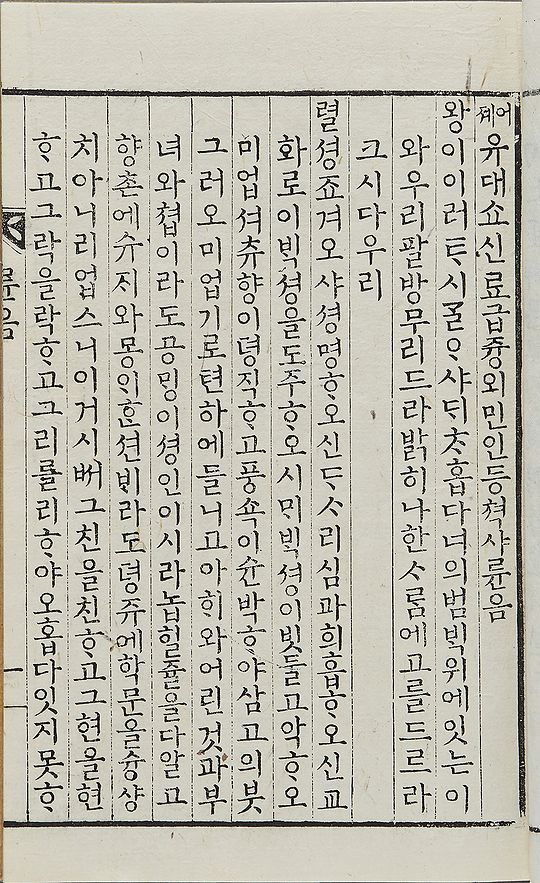 어졔 유대쇼신료급즁외민인등쳑샤륜음
왕이이러ᄐᆞ시ᄀᆞᆯᄋᆞ샤ᄃᆡᄎᆞ홉다너의범ᄇᆡᆨ위에잇는이
와우리팔방무리드라밝히나한ᄉᆞᄅᆞᆷ에고를드르라
크시다우리
렬셩죠겨오샤셩명ᄒᆞ오신ᄃᆞᄉᆞ리심과희흡ᄒᆞ오신교
화로이ᄇᆡᆨ셩을도주ᄒᆞ오시ᄆᆡᄇᆡᆨ셩이빗둘고악ᄒᆞ오
미업셔츄향이뎡직ᄒᆞ고풍쇽이슌박ᄒᆞ야삼고의붓
그러오미업기로텬하에들니고아ᄒᆡ와어린것과부
녀와쳡이라도공ᄆᆡᆼ이셩인이시라놉힐쥴을다알고
향촌에슈지와몽ᄆᆡᄒᆞᆫ션ᄇᆡ라도뎡쥬에학문을슝샹
치아니리업스니이거시ᄡᅥ그친을친ᄒᆞ고그현을현
ᄒᆞ고그락을락ᄒᆞ고그리를리ᄒᆞ야오홉다잇지못ᄒᆞ
륜음
一